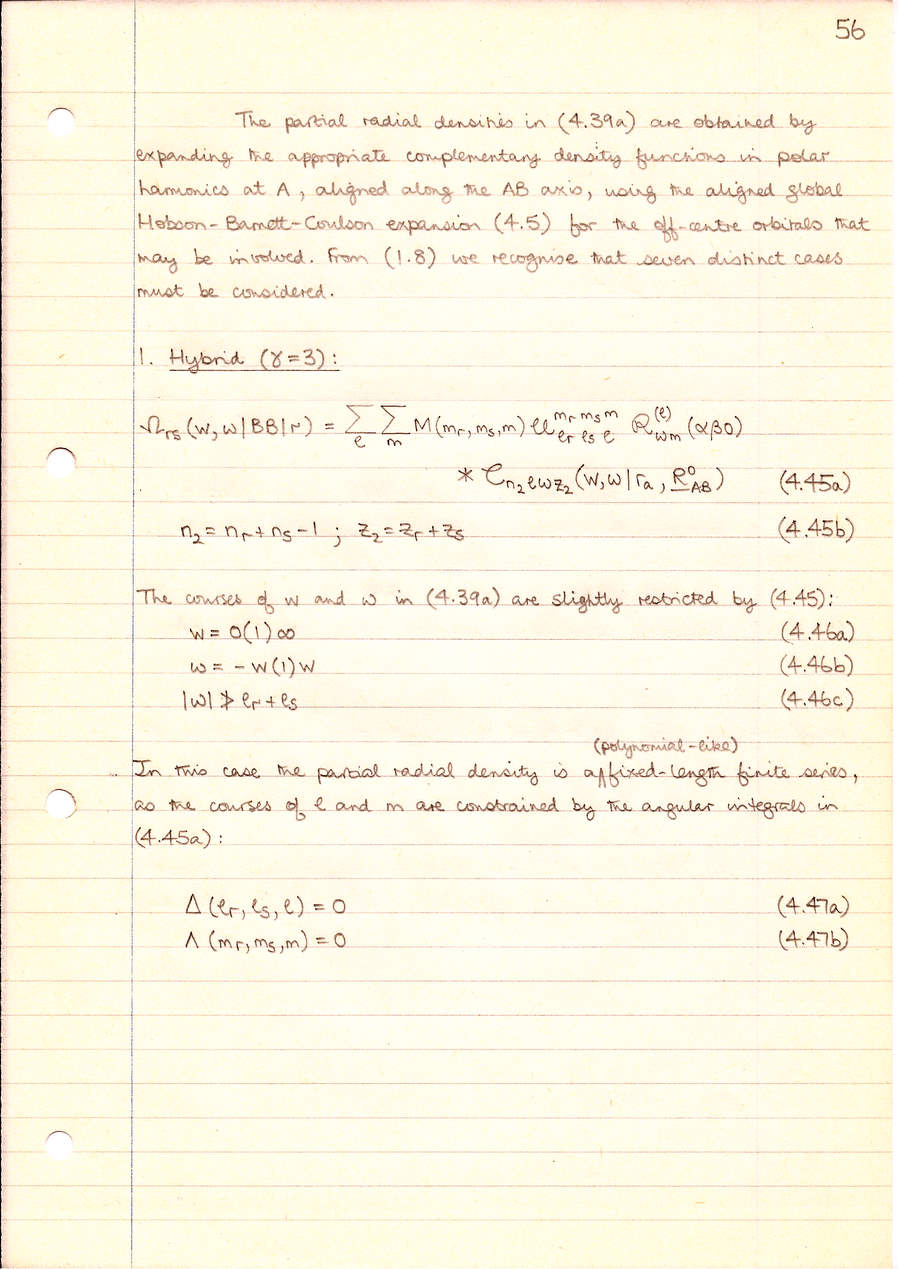 56
The partial radial densities in (4.39a) are obtained by
expanding the appropriate complementary density functions in polar
harmonics at A, aligned along the AB axis, using the aligned global
Hobson-Barnett-Coulson expansion (4.5) for the off-centre orbitals that
may be involved. From (1.8) we recognise that seven distinct cases
must be considered.
1. Hybrid (γ=3):
Ω_rs (w,ω|BB|r) = Σ_ℓ Σ_m M(m_r, m_s, m) 𝒰^{m_r m_s m}_{ℓ_r ℓ_s ℓ} ℛ^{(ℓ)}_{ωm} (αβ0)
* 𝒞_{n₂ℓωz₂} (w,ω|r_a, R⁰_AB) (4.45a)
n₂ = n_r + n_s − 1 ; z₂ = z_r + z_s (4.45b)
The courses of w and ω in (4.39a) are slightly restricted by (4.45):
w = 0(1)∞ (4.46a)
ω = − w(1)w (4.46b)
|ω| ≯ ℓ_r + ℓ_s (4.46c)
(polynomial-like)
In this case the partial radial density is a fixed-length finite series,
as the courses of ℓ and m are constrained by the angular integrals in
(4.45a):
Δ (ℓ_r, ℓ_s, ℓ) = 0 (4.47a)
Λ (m_r, m_s, m) = 0 (4.47b)